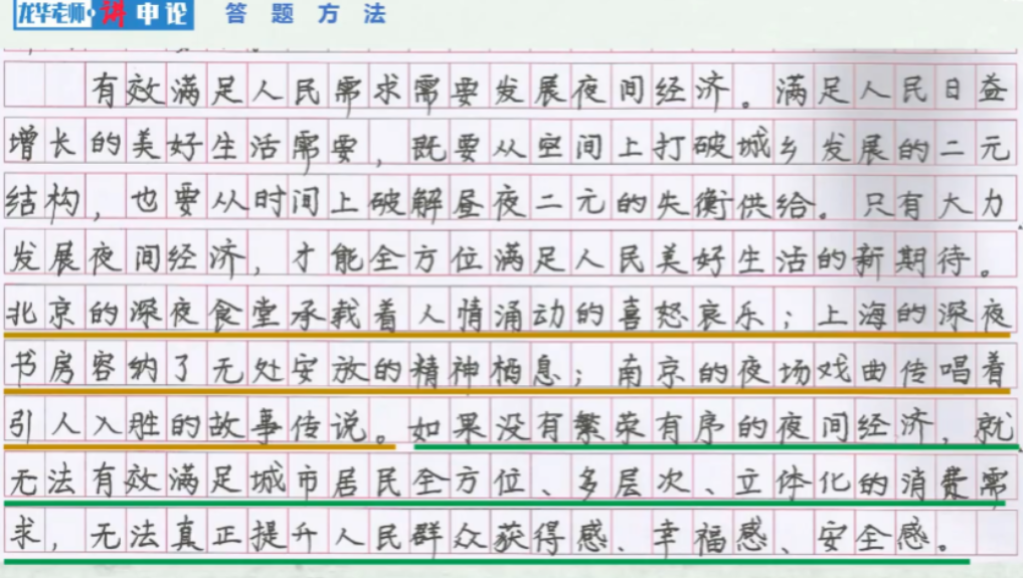 龙华老师·讲申论 答题方法
有效满足人民需求需要发展夜间经济。满足人民日益
增长的美好生活需要，既要从空间上打破城乡发展的二元
结构，也要从时间上破解昼夜二元的失衡供给。只有大力
发展夜间经济，才能全方位满足人民美好生活的新期待。
北京的深夜食堂承载着人情涌动的喜怒哀乐；上海的深夜
书房容纳了无处安放的精神栖息；南京的夜场戏曲传唱着
引人入胜的故事传说。如果没有繁荣有序的夜间经济，就
无法有效满足城市居民全方位、多层次、立体化的消费需
求，无法真正提升人民群众获得感、幸福感、安全感。